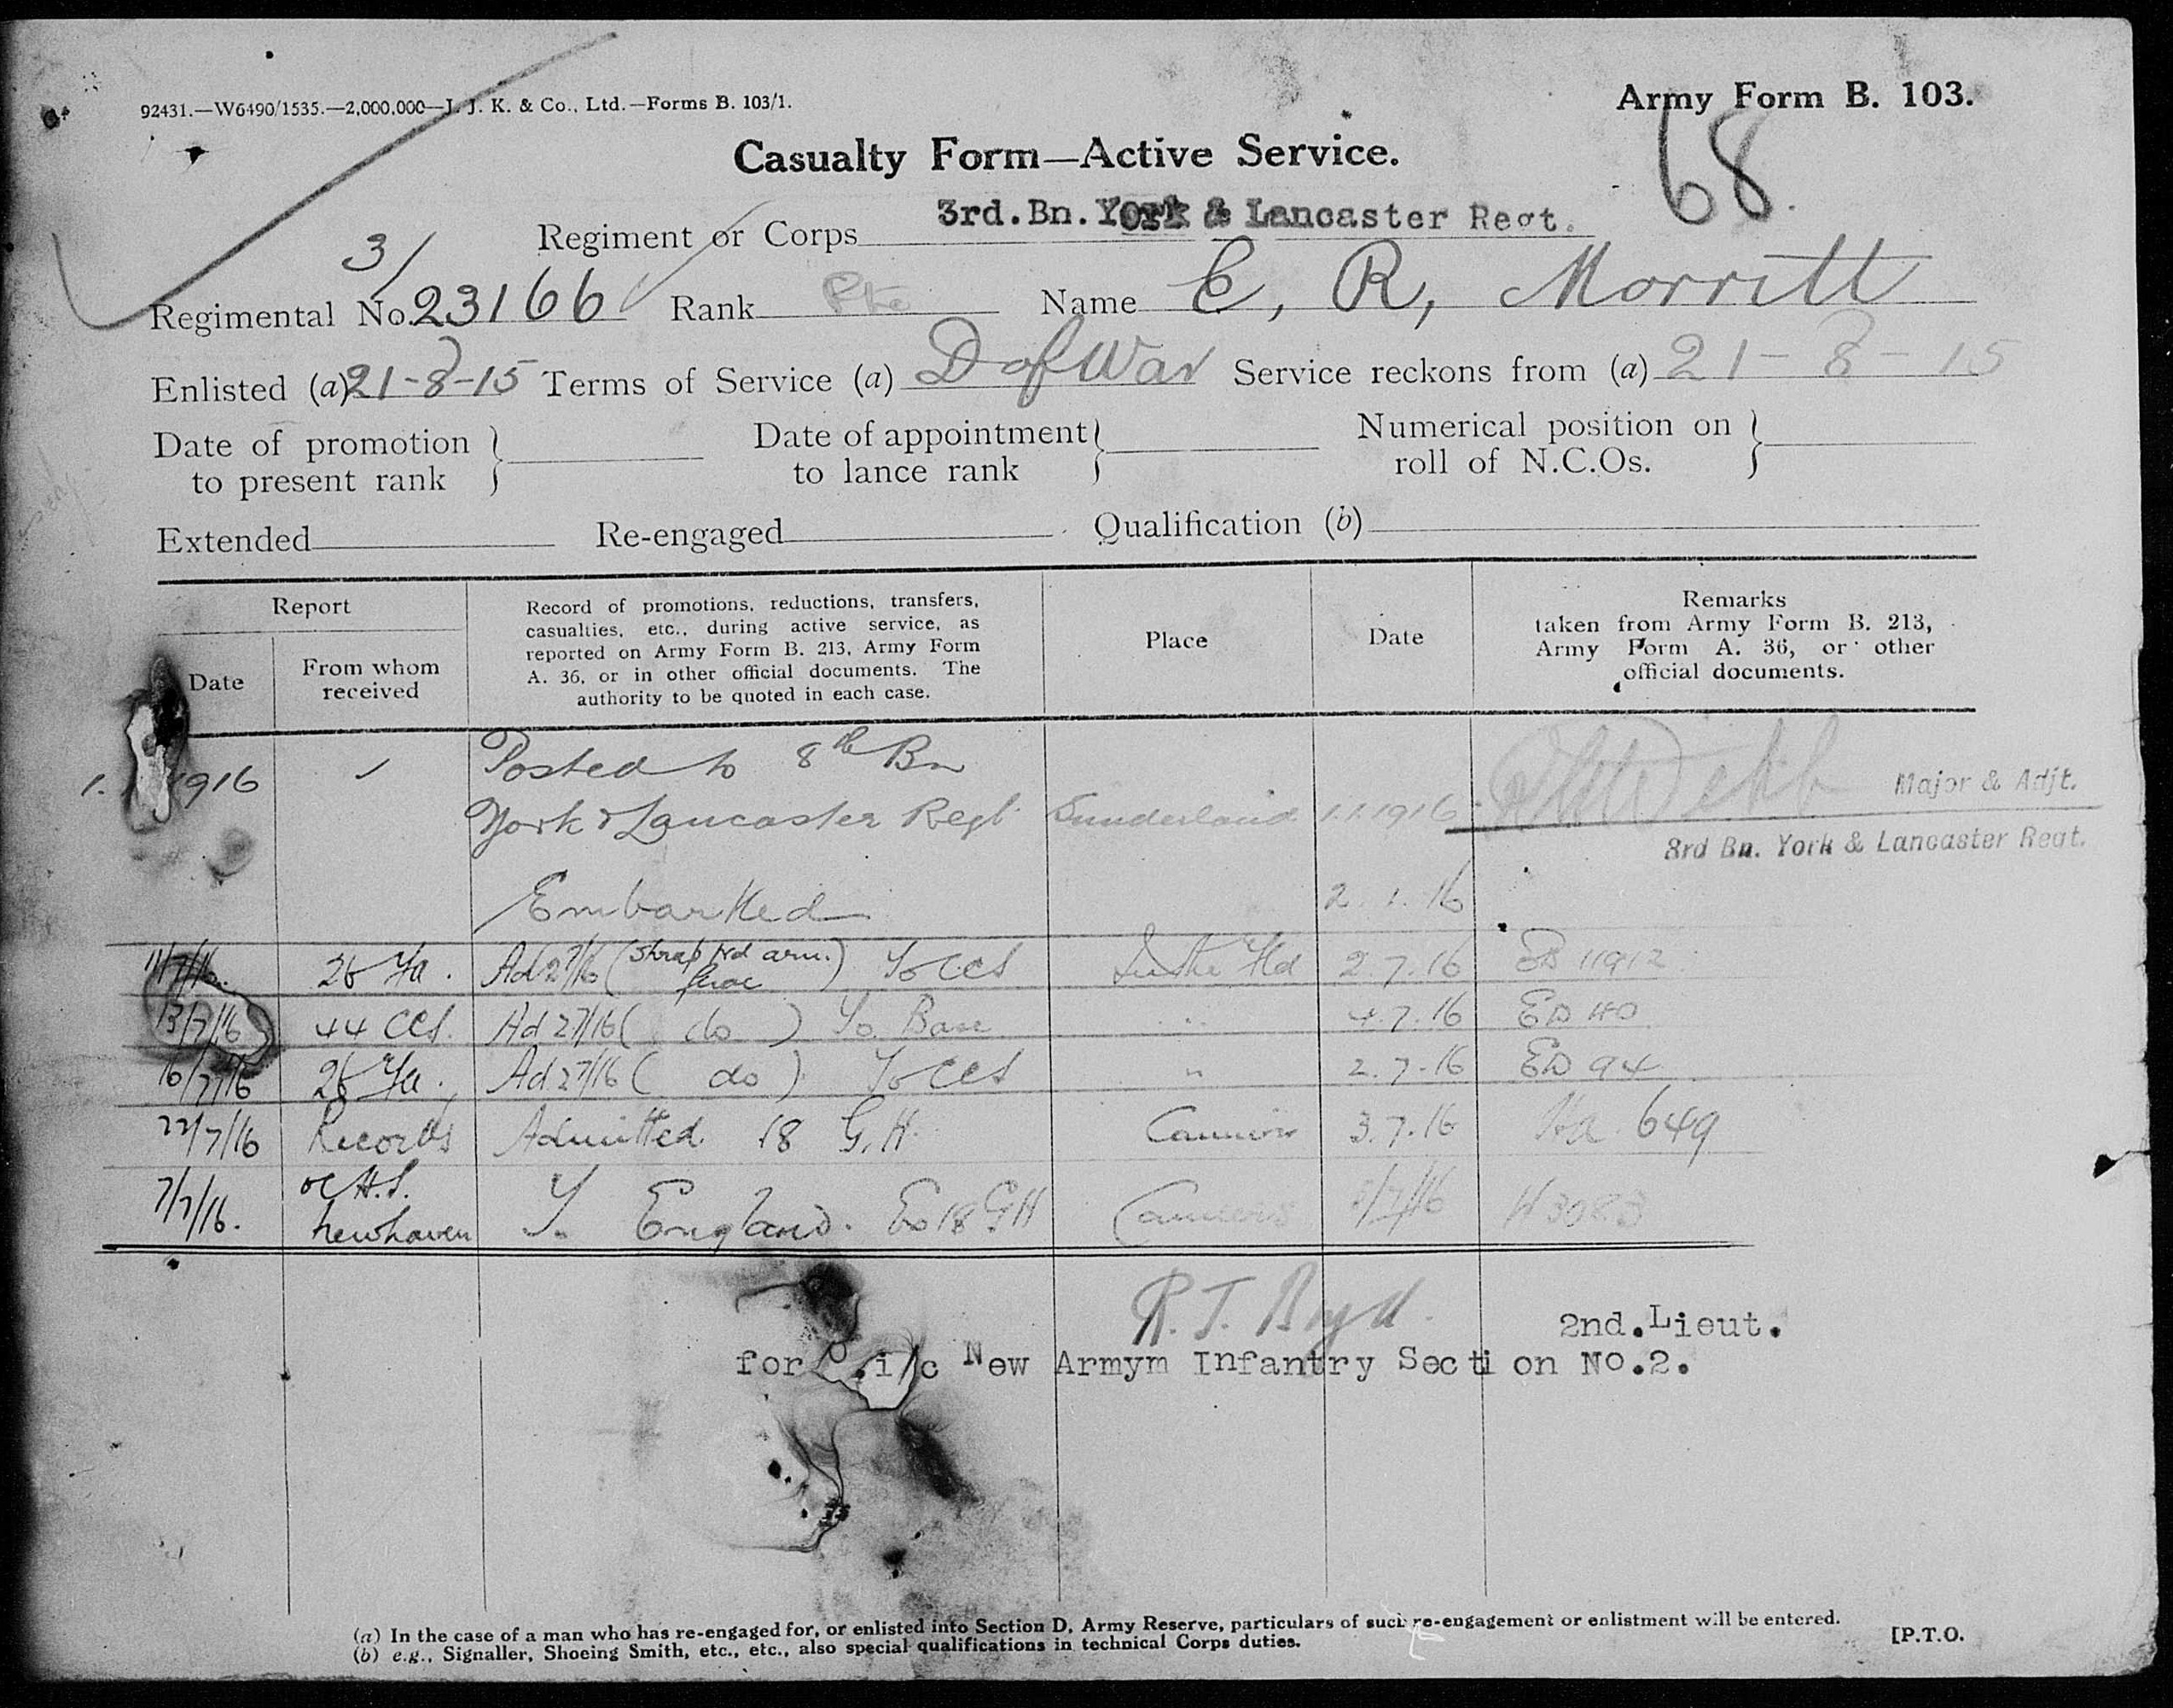 92431.—W6490/1535.—2,000,000—J. J. K. & Co., Ltd.—Forms B. 103/1.
Army Form B. 103.
68.
Casualty Form—Active Service.
Regiment or Corps 3rd.Bn. York & Lancaster Regt.
Regimental No. 3/23166 Rank Pte Name C, R, Morritt
Enlisted (a) 21-8-15 Terms of Service (a) D of War Service reckons from (a) 21-8-15
Date of promotion to present rank } Date of appointment to lance rank } Numerical position on roll of N.C.Os. }
Extended Re-engaged Qualification (b)
Report
Date
From whom received
Record of promotions, reductions, transfers,
casualties, etc., during active service, as
reported on Army Form B. 213, Army Form
A. 36, or in other official documents. The
authority to be quoted in each case.
Place
Date
Remarks
taken from Army Form B. 213,
Army Form A. 36, or other
official documents.
1. 1916 Posted to 8th Bn
York & Lancaster Regt Sunderland 1.1.1916 Webb Major & Adjt.
3rd Bn. York & Lancaster Regt.
Embarked 2.1.16
11/7/16. 26 Fa. Ad 2/7/16 (Shrap Wd arm. frac) To CCS In the Fld 2.7.16 11912
13/7/16 44 CCS. Ad 2/7/16 ( do ) To Base " 4.7.16 ED 40
16/7/16 26 Fa. Ad 2/7/16 ( do ) To CCS " 2.7.16 ED 94
22/7/16 Records Admitted 18 G.H. Camiers 3.7.16 649
7/7/16. OC H.S. Newhaven To England. Ex 18 GH Camiers /7/16 W 3083
R. T. Boyd.
2nd.Lieut.
for O.i/c New Armym Infantry Section No.2.
(a) In the case of a man who has re-engaged for, or enlisted into Section D, Army Reserve, particulars of such re-engagement or enlistment will be entered.
(b) e.g., Signaller, Shoeing Smith, etc., etc., also special qualifications in technical Corps duties.
[P.T.O.